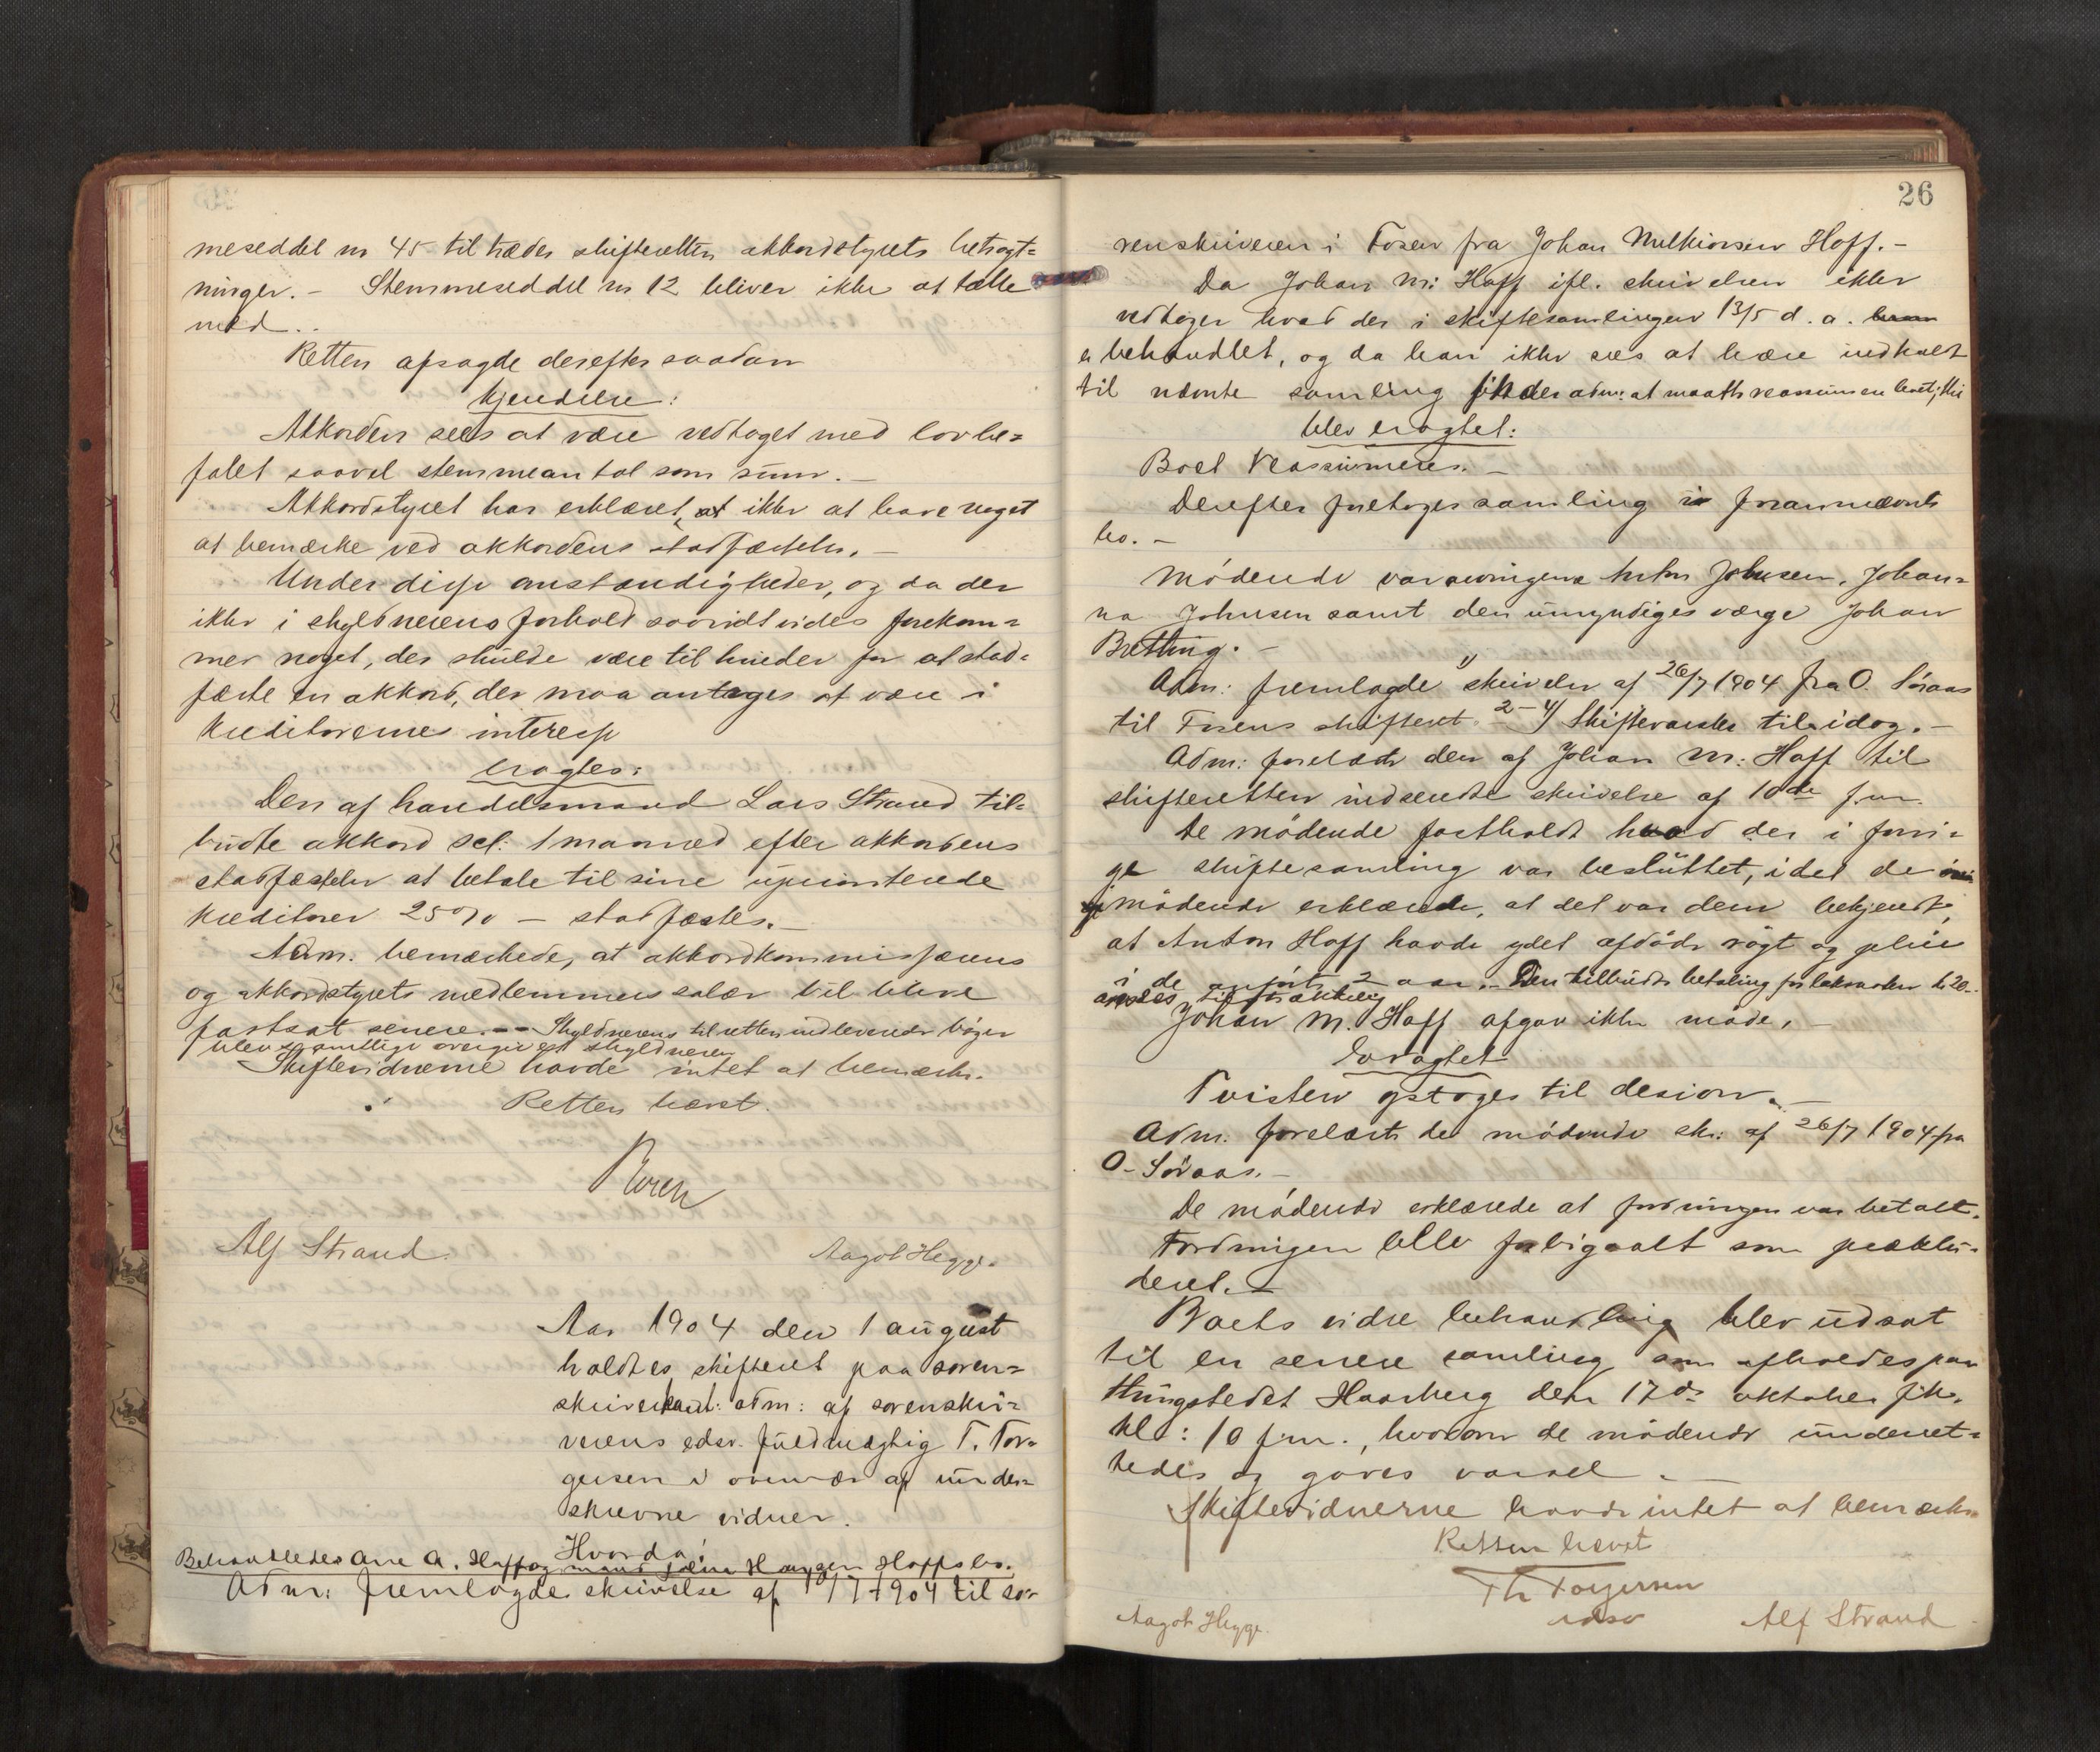 meseddel no 45 tiltræder skifteretten akkordstyrets betragt=
ninger. - Stemmeseddel no 12 bliver ikke at tælle
med..
Retten afsagde derefter saadan
Kjendelse:
Akkorden sees at være vedtaget med lovbe=
falet saavel stemmeantal som sum. -
Akkordstyret har erklæret, at ikke at have noget
at bemærke ved akkordens stadfæstelse. -
Under disse omstændigheder, og da der
ikke i skyldnerens forhold saavidt vides forekom=
mer noget, der skulde være til hinder for at stad=
fæste en akkord, der maa antages at være i
kreditorernes interesse
eragtes:
Den af handelsmand Lars Strand til=
budte akkord scl: 1 maaned efter akkordens
stadfæstelse at betale til sine uprioriterede
kreditorer 25% - stadfæstes. -
Adm. bemærkede, at akkordkommissærens
og akkordstyrets medlemmers salær vil blive
fastsat senere. -- Skyldnerens til retten indleverede bøger
blev samtlige overgivet skyldneren
Skiftevidnerne havde intet at bemærke.
Retten hævet.
Alf Strand.
Aagot Hegge.
Aar 1904 den 1 august
holdtes skifteret paa soren=
skriverkont: adm: af sorenskri=
verens edsv. fuldmægtig T. Tor=
gersen i overvær af under=
skrevne vidner.
Hvorda:
Behandledes Ane A. Hoff og mand Hoffs bo.
Adm: fremlagde skrivelse af 1904 til so=
26
renskriveren i Fosen fra Johan Melkiorsen Hoff. -
Da Johan M: Hoff ifl. skrivelsen ikke
vedtager hvad der i skiftesamlingen 13/5 d. a.
er behandlet, og da han ikke sees at være indkaldt
til nævnte samling finder adm: at maatte reassumere boet,
blev eragtet:
Boet reassumeres. -
Derefter foretoges samling i forannævnte
bo. -
Mødende var arvingerne Johnsen, Johan=
na Johnsen samt den umyndiges værge Johan
Brætting. -
Adm: fremlagde 1) skrivelse af 26/7 1904 fra O. Søraas
til Fosens skifteret. 2-4) Skiftevarsler til idag. -
Adm: forelæste den af Johan M: Hoff til
skifteretten indsendte skrivelse af 10de f.m.
De mødende fastholdt hvad der i forri=
ge skiftesamling var besluttet, idet de
mødende erklærede, at det var dem bekjendt,
at Anton Hoff havde ydet afdøde røgt og pleie
i de anførte 2 aar. - Den tilbudte betaling for kr 20.-
ansees tilstrækkelig
Johan M. Hoff afgav ikke møde. -
Eragtet
Tvisten optages til desion. -
Adm. forelæste de mødende skr: af 26/7 1904 fra
O. Søraas. -
De mødende erklærede at fordringen var betalt.
Fordringen blev forbigaaet som præklu=
deret. -
Boets vidre behandling blev udsat
til en senere samling som afholdes paa
thingstedet Haarberg den 17de oktober fstk.
kl: 10 fm., hvorom de mødende underret=
tedes og gaves varsel. -
Skiftevidnerne havde intet at bemærke
Retten hævet
Th Torgersen
edsv
Aagot Hegge.
Alf Strand